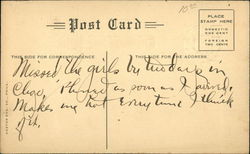 1500
PLACE
STAMP HERE
DOMESTIC
ONE CENT
FOREIGN
TWO CENTS
Post Card
THIS SIDE FOR CORRESPONDENCE
THIS SIDE FOR THE ADDRESS
Missed the girls by two days in
as soon as I arrived.
Makes me hot every time I think
of it.